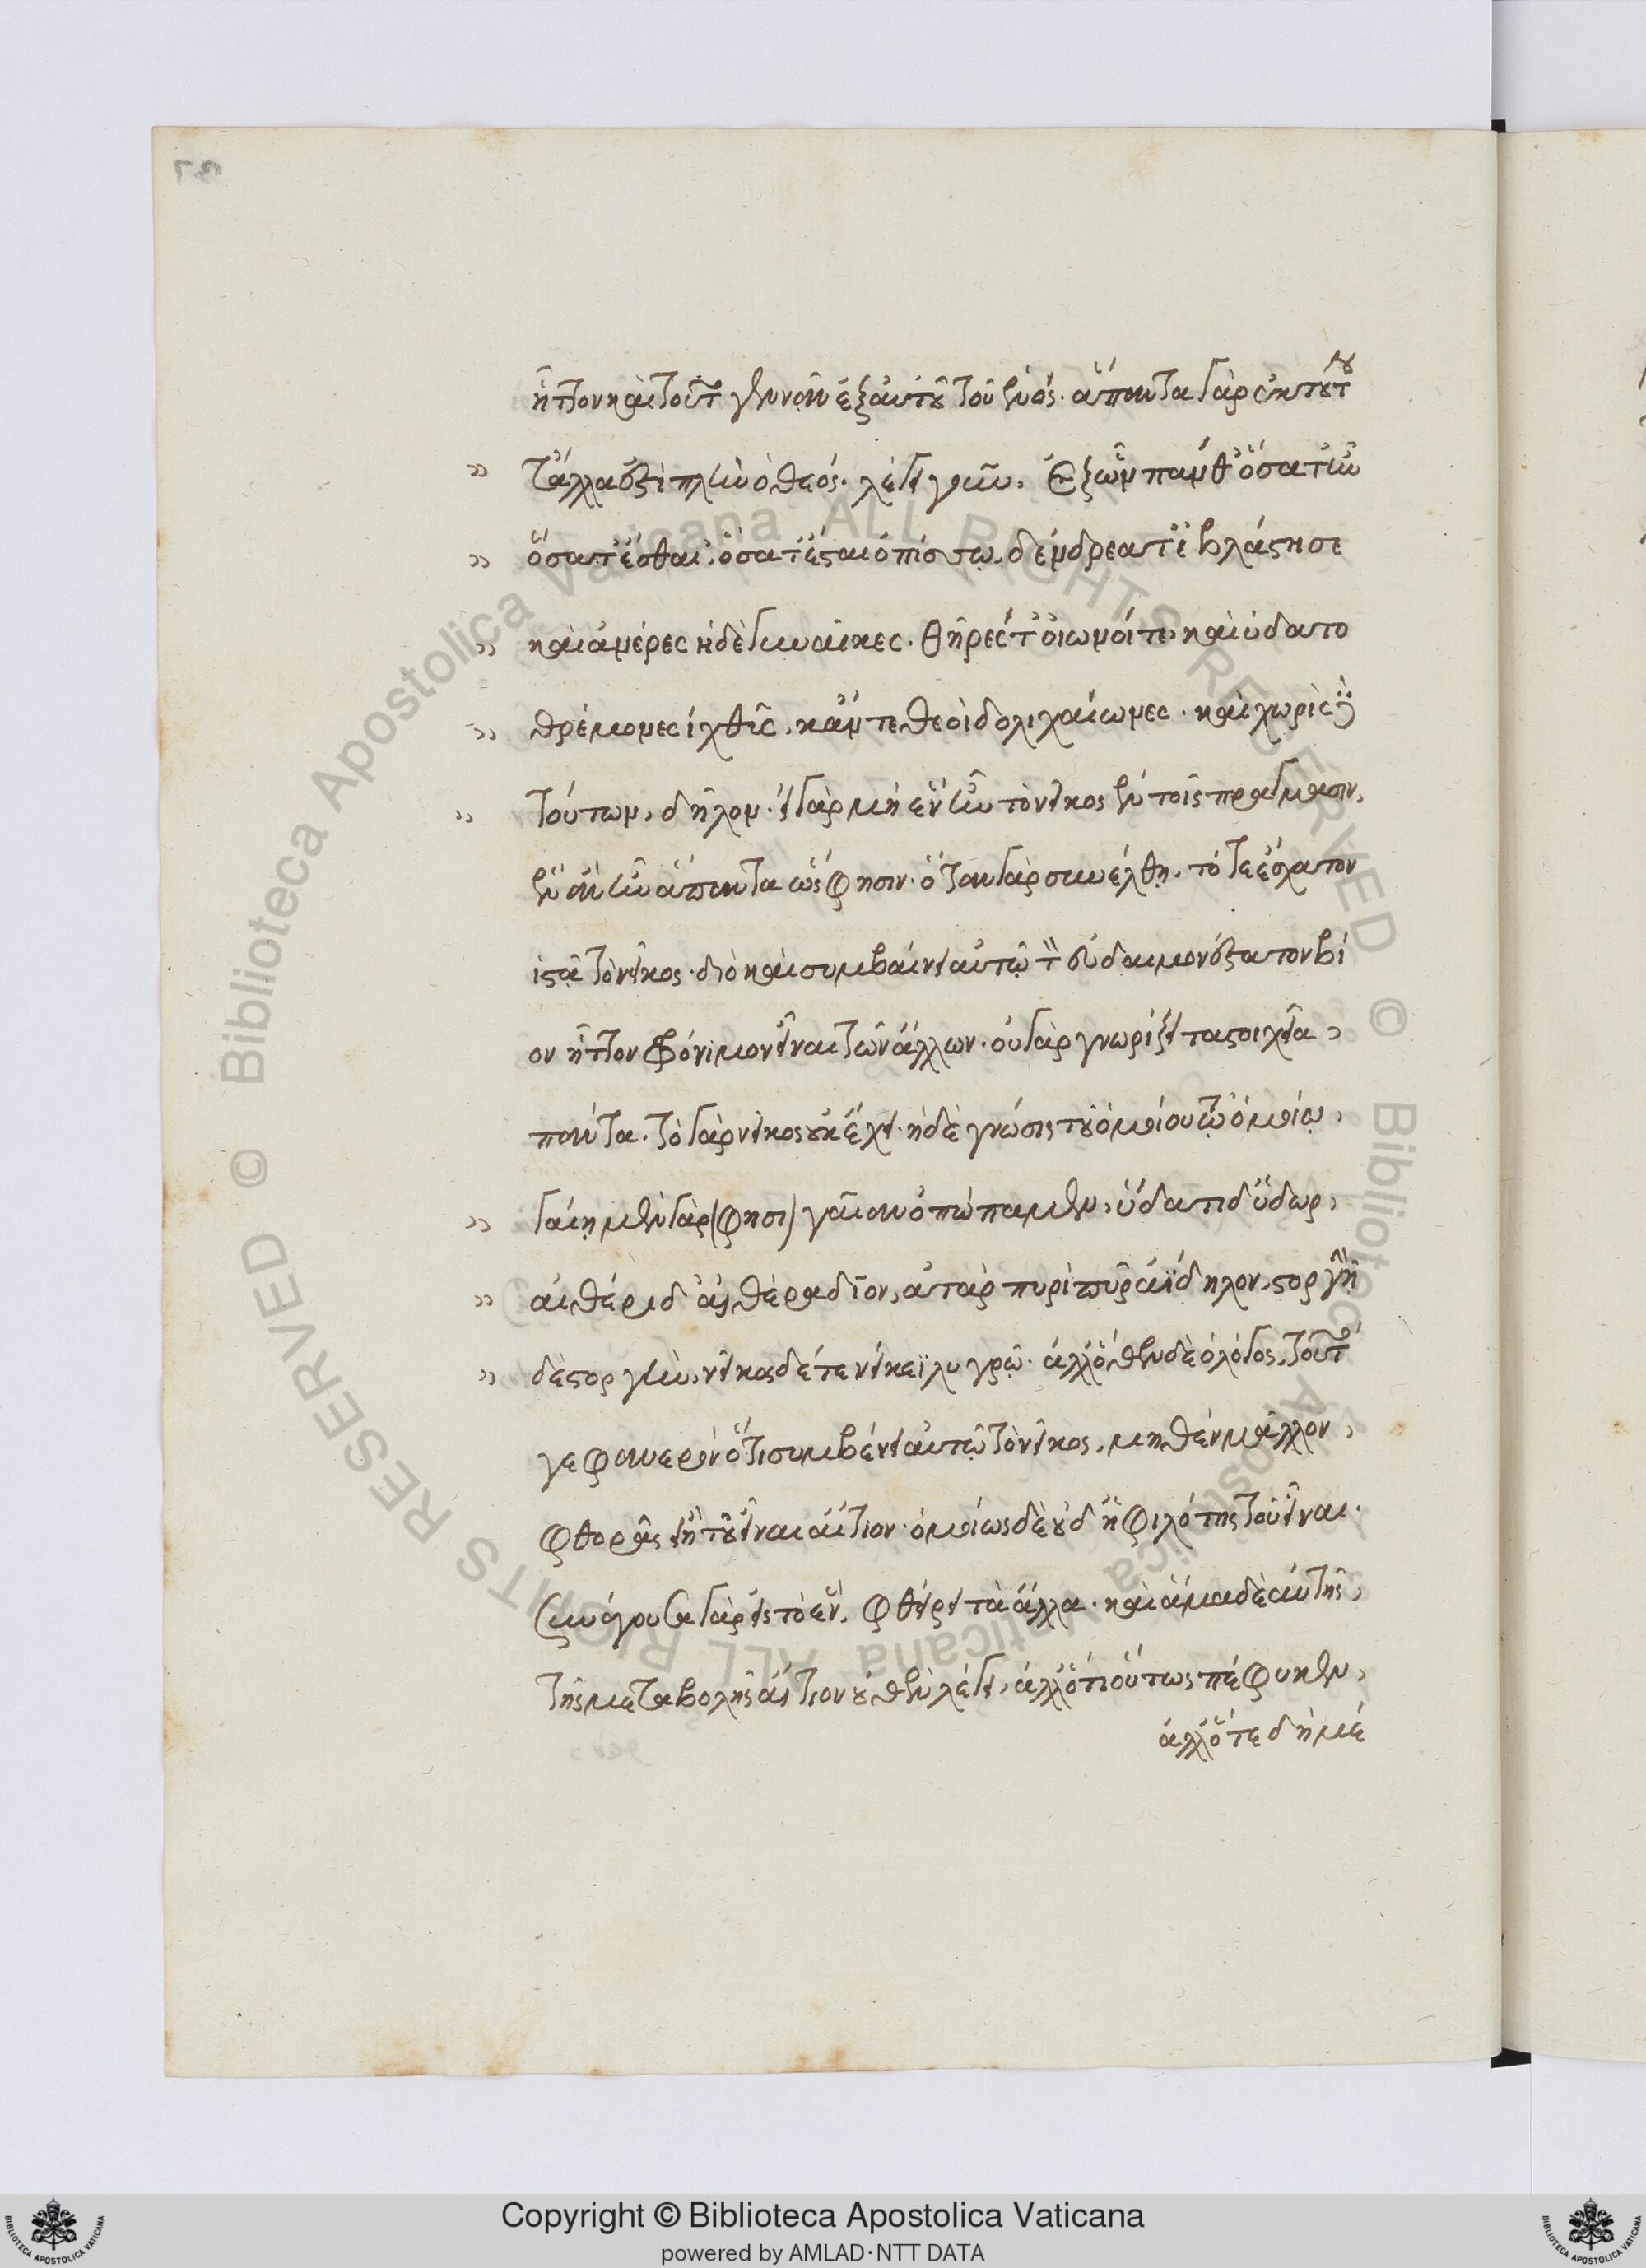 ἧττον καὶ τοῦτ γενᾶν ἐξ αὐτοῦ τοῦ ἑνός· ἅπαντα γὰρ ἐκ τούτου
τἄλλα ἐστὶ πλὴν ὁ θεός· λέγει γοῦν. Ἐξ ὧν πάνθ' ὅσα τ' ἦν
ὅσα τ' ἔσθαι, ὅσα τ' ἔσται ὀπίσσω, δένδρεα τ' ἐβλάστησε
καὶ ἀνέρες ἠδὲ γυναῖκες. θῆρές τ' οἰωνοί τε, καὶ ὑδατο
θρέμονες ἰχθῦς, καί τε θεοὶ δολιχαίωνες. καὶ χωρὶς δὲ
τούτων, δῆλον· εἰ γὰρ μὴ ἓν ἦν τὸ νεῖκος ἐν τοῖς πράγμασιν,
ἓν ἂν ἦν ἅπαντα ὥς φησιν· ὅταν γὰρ συνέλθῃ, τό τε ἔσχατον
ἵστατο νεῖκος· διὸ καὶ συμβαίνει αὐτῷ τὸν εὐδαιμονέστατον βί
ον ἧττον φρόνιμον εἶναι τῶν ἄλλων· οὐ γὰρ γνωρίζει τὰ στοιχεῖα,
πάντα. τὸ γὰρ νεῖκος οὐκ ἔχει· ἡ δὲ γνῶσις τοῦ ὁμοίου τῷ ὁμοίῳ,
γαίῃ μὲν γὰρ (φησι) γαῖαν ὀπώπαμεν, ὕδατι δ' ὕδωρ,
αἰθέρι δ' αἰθέρα δῖον, ἀτὰρ πυρὶ πῦρ ἀΐδηλον, στοργῇ
δὲ στοργὴν, νεῖκος δέ τε νείκεϊ λυγρῷ· ἀλλ' ὅθεν δὲ ὁ λόγος, τοῦτό
γε φανερὸν ὅτι συμβαίνει αὐτῷ τὸ νεῖκος, μηθὲν μᾶλλον,
φθορᾶς ἢ τοῦ εἶναι αἴτιον· ὁμοίως δὲ οὐδ' ἡ φιλότης τοῦ εἶναι·
συνάγουσα γὰρ εἰς τὸ ἓν, φθείρει τὰ ἄλλα· καὶ ἅμα δὲ αὐτῆς,
τῆς μεταβολῆς αἴτιον οὐθὲν λέγει, ἀλλ' ὅτι οὕτως πέφυκεν,
ἀλλ' ὅτε δὴ μέ
Copyright © Biblioteca Apostolica Vaticana
powered by AMLAD·NTT DATA